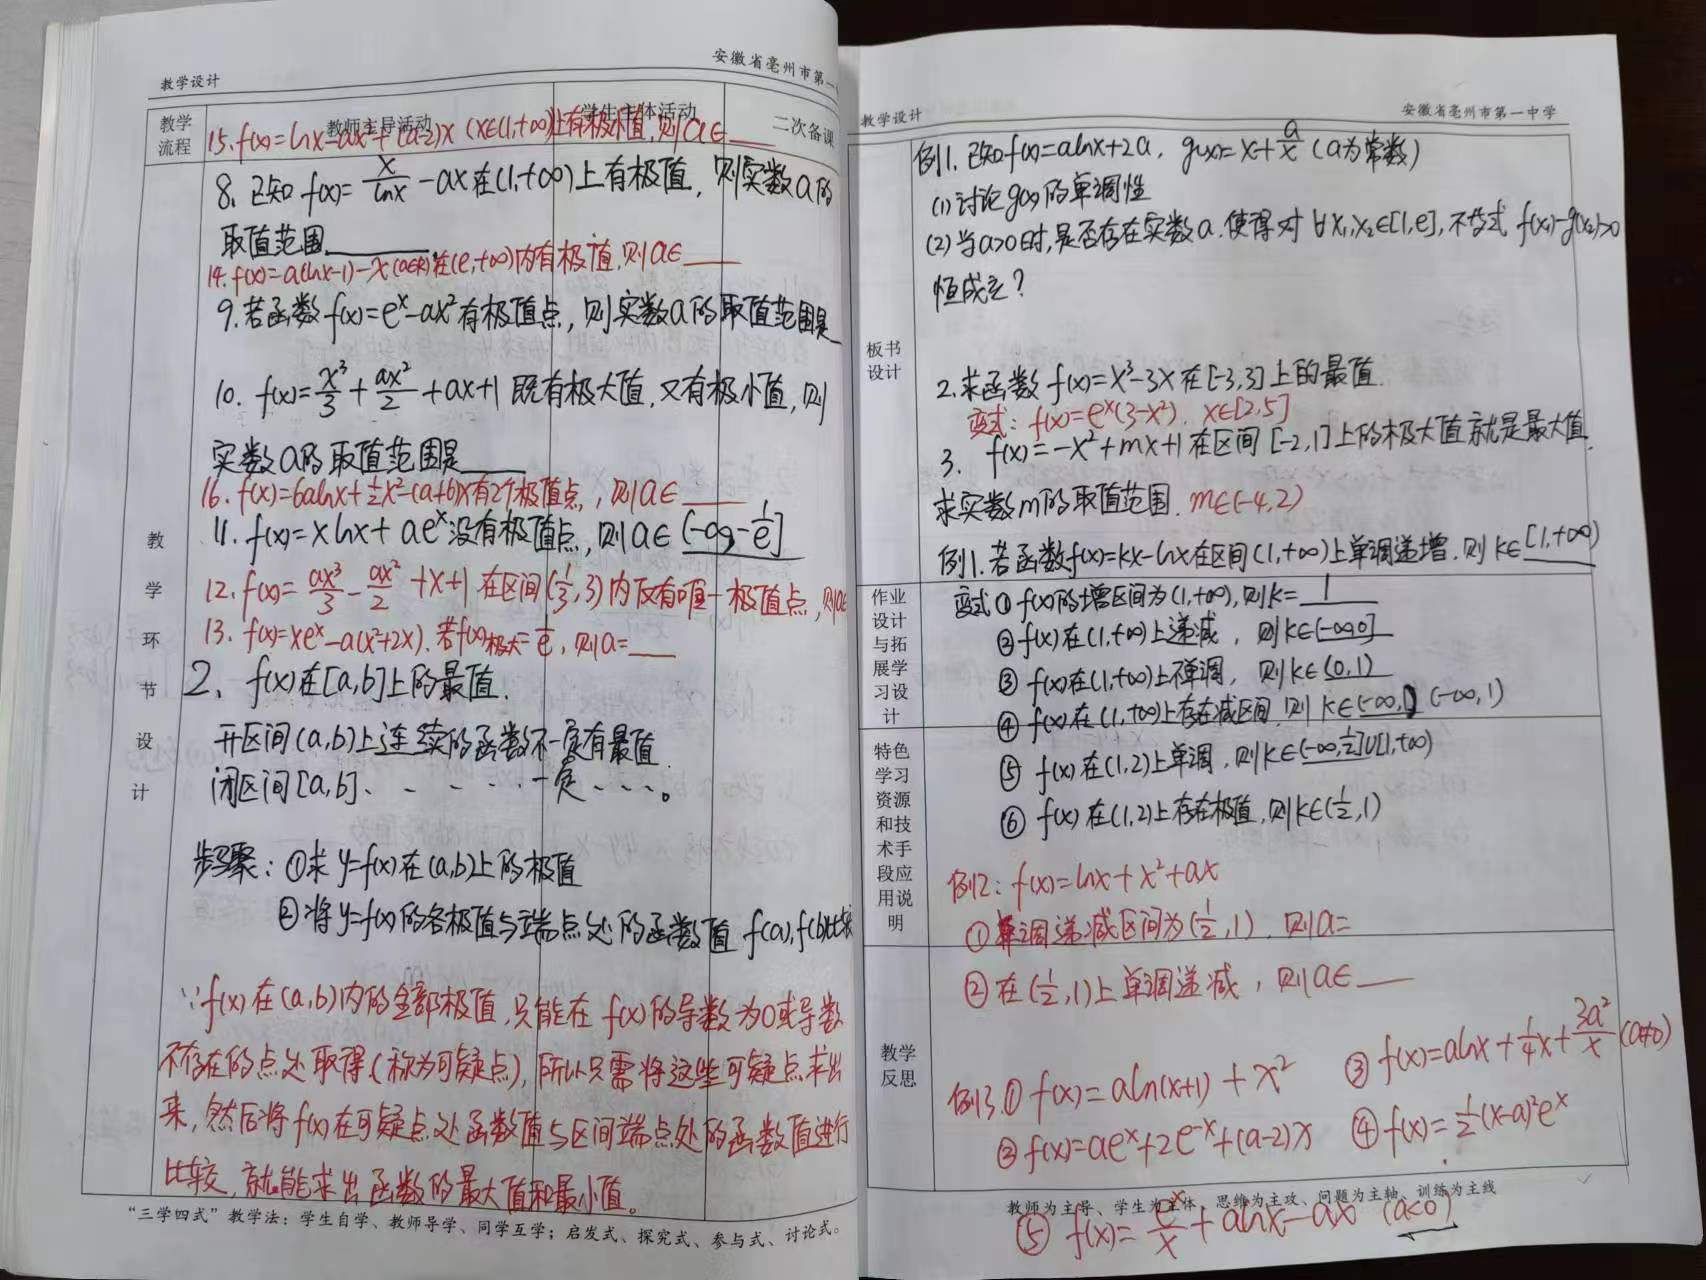 教学设计
安徽省亳州市第一
教学流程
教师主导活动
学生主体活动
二次备课
15. f(x)=lnx-ax²+(a-2)x (x∈(1,+∞))上有极值,则a∈___
8. 已知 f(x)=x/lnx-ax在(1,+∞)上有极值,则实数a的
取值范围___
14. f(x)=a(lnx-1)-x(a∈R)在(e,+∞)内有极值,则a∈___
9. 若函数 f(x)=eˣ-ax²有极值点,则实数a的取值范围是_
10. f(x)=x³/3+ax²/2+ax+1 既有极大值,又有极小值,则
实数a的取值范围是___
16. f(x)=6alnx+½x²-(a+6)x有2个极值点,则a∈___
11. f(x)=xlnx+aeˣ没有极值点,则a∈(-∞,-1/e]
12. f(x)=ax³/3-ax²/2+x+1 在区间(1/3,3)内仅有唯一极值点,则a∈
13. f(x)=xeˣ-a(x²+2x). 若f(x)极大=1/e,则a=___
教学环节设计
2、f(x)在[a,b]上的最值.
开区间(a,b)上连续的函数不一定有最值.
闭区间[a,b]、- - - - · 一定、- - 。
步骤:①求y=f(x)在(a,b)上的极值
②将y=f(x)的各极值与端点处的函数值 f(a),f(b)比较
∵f(x)在(a,b)内的全部极值,只能在f(x)的导数为0或导数
不存在的点处取得(称为可疑点),所以只需将这些可疑点求出
来,然后将f(x)在可疑点处函数值与区间端点处的函数值进行
比较,就能求出函数的最大值和最小值。
“三学四式”教学法:学生自学、教师导学、同学互学;启发式、探究式、参与式、讨论式。
教学设计
安徽省亳州市第一中学
例1. 已知f(x)=alnx+2a, g(x)=x+a/x (a为常数)
(1)讨论g(x)的单调性
(2)当a>0时,是否存在实数a.使得对∀x₁,x₂∈[1,e],不等式 f(x₁)-g(x₂)>0
恒成立?
板书设计
2. 求函数 f(x)=x³-3x在[-3,3]上的最值.
变式:f(x)=eˣ(3-x²). x∈[2,5]
3. f(x)=-x²+mx+1在区间[-2,1]上的极大值就是最大值.
求实数m的取值范围. m∈(-4,2)
例1. 若函数f(x)=kx-lnx在区间(1,+∞)上单调递增,则k∈[1,+∞)
作业设计与拓展学习设计
变式①f(x)的增区间为(1,+∞),则k=1
②f(x)在(1,+∞)上递减,则k∈(-∞,0]
③f(x)在(1,+∞)上不单调,则k∈(0,1)
④f(x)在(1,+∞)上存在减区间,则k∈(-∞,1)
特色学习资源和技术手段应用说明
⑤f(x)在(1,2)上单调,则k∈(-∞,½]∪[1,+∞)
⑥f(x)在(1,2)上存在极值,则k∈(½,1)
例2:f(x)=lnx+x²+ax
①单调递减区间为(½,1),则a=
②在(½,1)上单调递减,则a∈___
教学反思
例3.①f(x)=aln(x+1)+x²
③f(x)=alnx+¼x+3a²/x (a≠0)
②f(x)=aeˣ+2e⁻ˣ+(a-2)x
④f(x)=½(x-a)²eˣ
教师为主导、学生为主体、思维为主攻、问题为主轴、训练为主线
⑤f(x)=eˣ/x+alnx-ax (a<0)